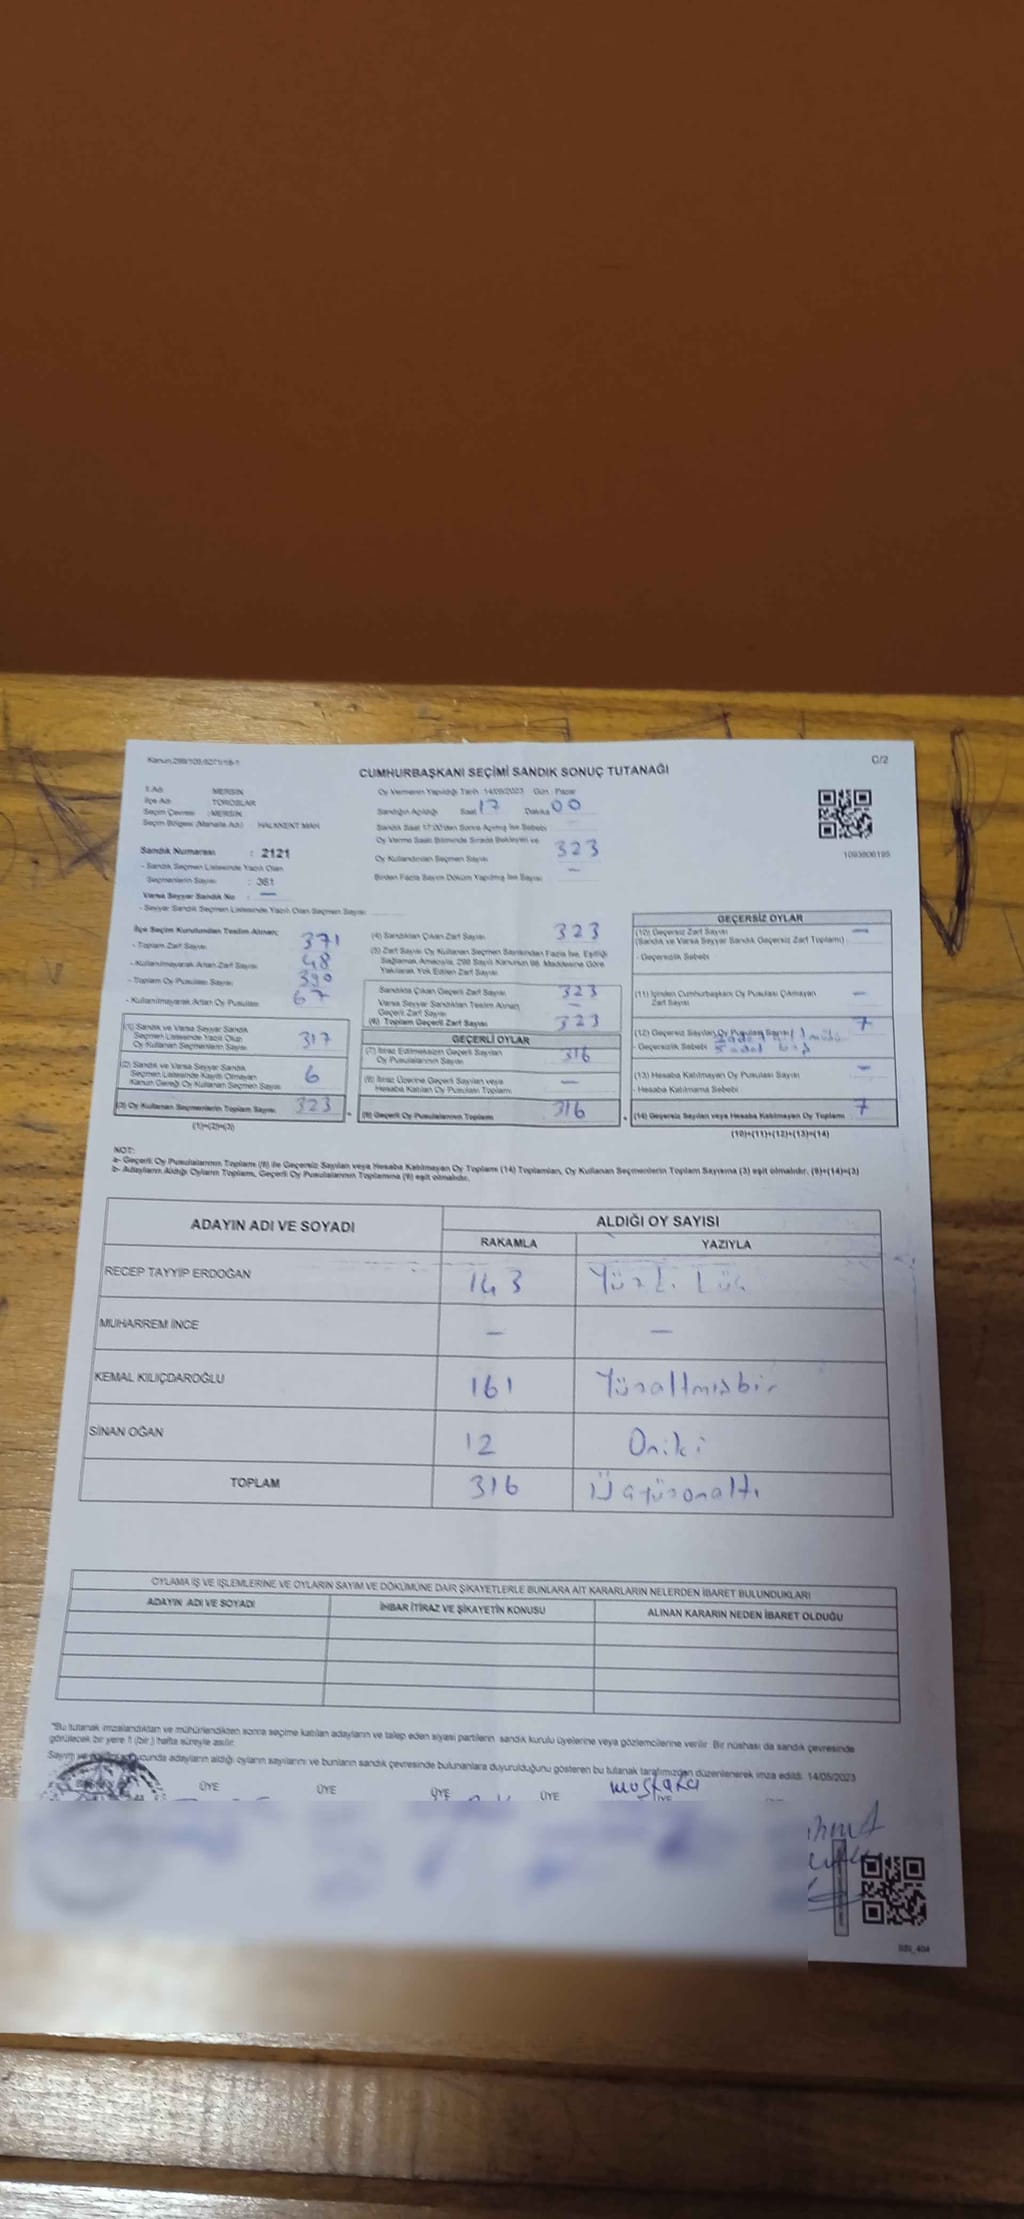 Kanun:298/105,6271/18-1
C/2
CUMHURBAŞKANI SEÇİMİ SANDIK SONUÇ TUTANAĞI
İl Adı MERSİN
İlçe Adı TOROSLAR
Seçim Çevresi :MERSİN
Seçim Bölgesi (Mahalle Adı) : HALKKENT MAH
Sandık Numarası : 2121
- Sandık Seçmen Listesinde Yazılı Olan
Seçmenlerin Sayısı : 361
Varsa Seyyar Sandık No : —
- Seyyar Sandık Seçmen Listesinde Yazılı Olan Seçmen Sayısı
Oy Vermenin Yapıldığı Tarih :14/05/2023 Gün : Pazar
Sandığın Açıldığı Saat 17 Dakika 00
Sandık Saat 17:00'den Sonra Açılmış İse Sebebi
Oy Verme Saati Bitiminde Sırada Bekleyen ve
Oy Kullandırılan Seçmen Sayısı 323
Birden Fazla Sayım Döküm Yapılmış İse Sayısı —
1093806195
İlçe Seçim Kurulundan Teslim Alınan;
- Toplam Zarf Sayısı 371
- Kullanılmayarak Artan Zarf Sayısı 48
- Toplam Oy Pusulası Sayısı 390
- Kullanılmayarak Artan Oy Pusulası 67
(1) Sandık ve Varsa Seyyar Sandık
Seçmen Listesinde Yazılı Olup
Oy Kullanan Seçmenlerin Sayısı 317
(2) Sandık ve Varsa Seyyar Sandık
Seçmen Listesinde Kayıtlı Olmayan
Kanun Gereği Oy Kullanan Seçmen Sayısı 6
(3) Oy Kullanan Seçmenlerin Toplam Sayısı 323
(1)+(2)=(3)
(4) Sandıktan Çıkan Zarf Sayısı 323
(5) Zarf Sayısı Oy Kullanan Seçmen Sayısından Fazla İse, Eşitliği
Sağlamak Amacıyla, 298 Sayılı Kanunun 98. Maddesine Göre
Yakılarak Yok Edilen Zarf Sayısı —
Sandıkta Çıkan Geçerli Zarf Sayısı 323
Varsa Seyyar Sandıktan Teslim Alınan
Geçerli Zarf Sayısı —
(6) Toplam Geçerli Zarf Sayısı 323
GEÇERLİ OYLAR
(7) İtiraz Edilmeksizin Geçerli Sayılan
Oy Pusulalarının Sayısı 316
(8) İtiraz Üzerine Geçerli Sayılan veya
Hesaba Katılan Oy Pusulası Toplamı —
(9) Geçerli Oy Pusulalarının Toplamı 316
GEÇERSİZ OYLAR
(10) Geçersiz Zarf Sayısı —
(Sandık ve Varsa Seyyar Sandık Geçersiz Zarf Toplamı)
- Geçersizlik Sebebi
(11) İçinden Cumhurbaşkanı Oy Pusulası Çıkmayan
Zarf Sayısı —
(12) Geçersiz Sayılan Oy Pusulası Sayısı 7
- Geçersizlik Sebebi 5 adet
(13) Hesaba Katılmayan Oy Pusulası Sayısı —
- Hesaba Katılmama Sebebi
(14) Geçersiz Sayılan veya Hesaba Katılmayan Oy Toplamı 7
(10)+(11)+(12)+(13)=(14)
NOT:
a- Geçerli Oy Pusulalarının Toplamı (9) ile Geçersiz Sayılan veya Hesaba Katılmayan Oy Toplamı (14) Toplamları, Oy Kullanan Seçmenlerin Toplam Sayısına (3) eşit olmalıdır. (9)+(14)=(3)
b- Adayların Aldığı Oyların Toplamı, Geçerli Oy Pusulalarının Toplamına (9) eşit olmalıdır.
ADAYIN ADI VE SOYADI ALDIĞI OY SAYISI
RAKAMLA YAZIYLA
RECEP TAYYİP ERDOĞAN 143
MUHARREM İNCE — —
KEMAL KILIÇDAROĞLU 161 Yüzaltmışbir
SİNAN OĞAN 12 Oniki
TOPLAM 316 Üçyüzonaltı
OYLAMA İŞ VE İŞLEMLERİNE VE OYLARIN SAYIM VE DÖKÜMÜNE DAİR ŞİKAYETLERLE BUNLARA AİT KARARLARIN NELERDEN İBARET BULUNDUKLARI
ADAYIN ADI VE SOYADI İHBAR İTİRAZ VE ŞİKAYETİN KONUSU ALINAN KARARIN NEDEN İBARET OLDUĞU
"Bu tutanak imzalandıktan ve mühürlendikten sonra seçime katılan adayların ve talep eden siyasi partilerin sandık kurulu üyelerine veya gözlemcilerine verilir. Bir nüshası da sandık çevresinde
görülecek bir yere 1 (bir) hafta süreyle asılır.
Sayım ve adayların aldığı oyların sayılarını ve bunların sandık çevresinde bulunanlara duyurulduğunu gösteren bu tutanak tarafımızdan düzenlenerek imza edildi. 14/05/2023
ÜYE ÜYE ÜYE ÜYE ÜYE